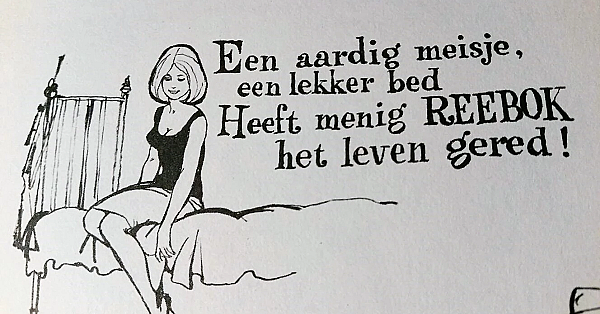 Een aardig meisje,
een lekker bed
Heeft menig REEBOK
het leven gered!